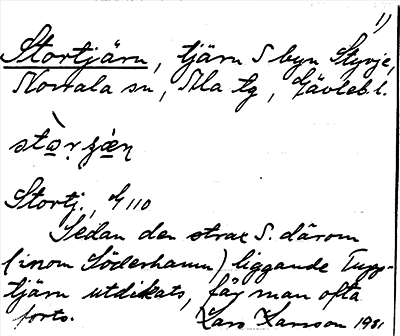 1)
Stortjärn, tjärn S byn Styvje,
Norrala sn, Ala tg, Gävleb. l.
stò̱r̥ȷæ̀ṇ
Stortj., G 110
Sedan den strax S. därom
(inom Söderhamn) liggande Tupp-
tjärn utdikats, får man ofta
forts. Lars Larsson 1981